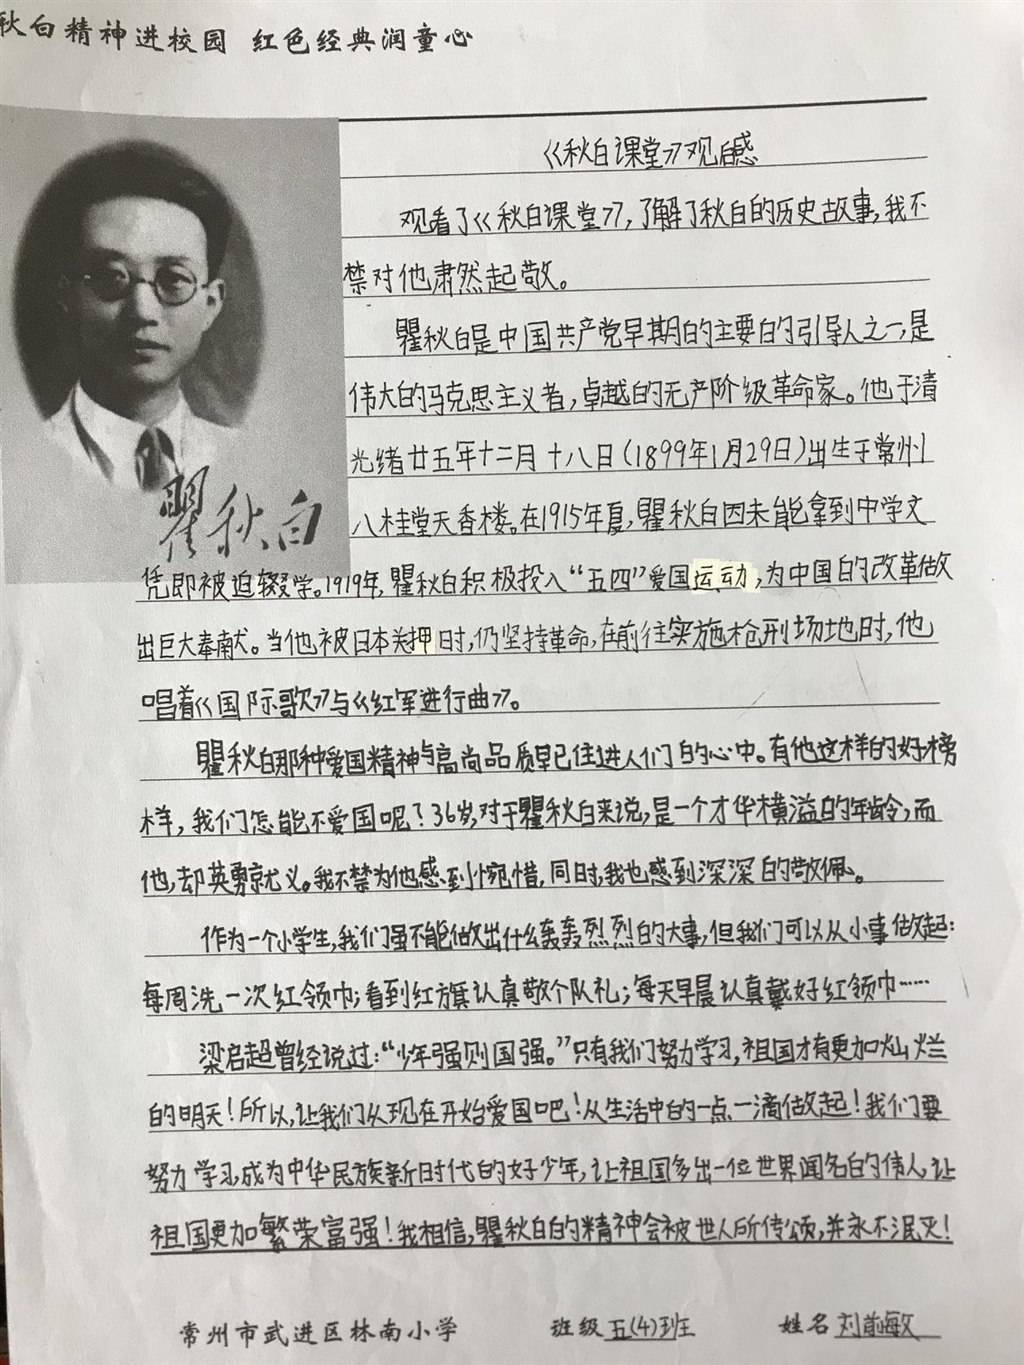 秋白精神进校园 红色经典润童心
《秋白课堂》观后感
观看了《秋白课堂》,了解了秋白的历史故事,我不
禁对他肃然起敬。
瞿秋白是中国共产党早期的主要的引导人之一,是
伟大的马克思主义者,卓越的无产阶级革命家。他于清
光绪廿五年十二月十八日(1899年1月29日)出生于常州
八桂堂天香楼。在1915年夏,瞿秋白因未能拿到中学文
瞿秋白
凭即被迫辍学。1919年,瞿秋白积极投入“五四”爱国运动,为中国的改革做
出巨大奉献。当他被日本关押时,仍坚持革命,在前往实施枪刑场地时,他
唱着《国际歌》与《红军进行曲》。
瞿秋白那种爱国精神与高尚品质早已住进人们的心中。有他这样的好榜
样,我们怎能不爱国呢?36岁,对于瞿秋白来说,是一个才华横溢的年龄,而
他,却英勇就义。我不禁为他感到惋惜,同时,我也感到深深的敬佩。
作为一个小学生,我们虽不能做出什么轰轰烈烈的大事,但我们可以从小事做起:
每周洗一次红领巾;看到红旗认真敬个队礼;每天早晨认真戴好红领巾……
梁启超曾经说过:“少年强则国强。”只有我们努力学习,祖国才有更加灿烂
的明天!所以,让我们从现在开始爱国吧!从生活中的一点一滴做起!我们要
努力学习,成为中华民族新时代的好少年,让祖国多出一位世界闻名的伟人,让
祖国更加繁荣富强!我相信,瞿秋白的精神会被世人所传颂,并永不泯灭!
常州市武进区林南小学 班级 五(4)班 姓名 刘前敏